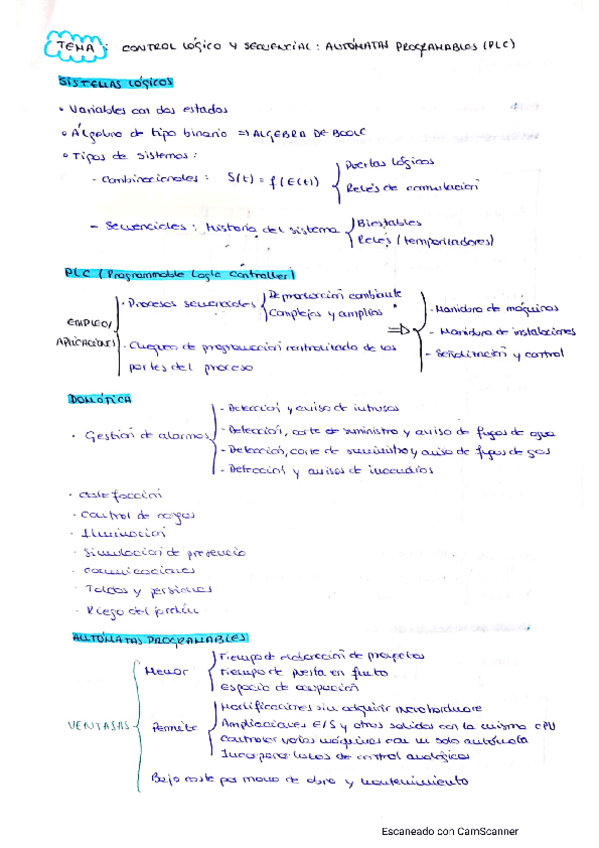 TEMA : CONTROL LÓGICO Y SECUENCIAL : AUTÓMATAS PROGRAMABLES (PLC)
SISTEMAS LÓGICOS
• Variables con dos estados
• Álgebra de tipo binario => ALGEBRA DE BOOLE
• Tipos de sistemas :
- Combinacionales : S(t) = f(E(t))
Puertas lógicos
Relés de conmutación
- Secuenciales : Historia del sistema
Biestables
Relés (temporizadores)
PLC (Programmable Logic Controller)
EMPLEO/
APLICACIONES
· Procesos secuenciales
De producción cambiante
Complejos y amplios
· Chequeo de programación centralizada de las
partes del proceso
=>
- Maniobra de máquinas
- Maniobra de instalaciones
- Señalización y control
DOMÓTICA
· Gestión de alarmas
- Detección y aviso de intrusos
- Detección, corte de suministro y aviso de fugas de agua
- Detección, corte de suministro y aviso de fugas de gas
- Detección y avisos de incendios
· Calefacción
· Control de cargas
· Iluminación
· Simulación de presencia
· Comunicaciones
· Toldos y persianas
· Riego del jardín
AUTÓMATAS PROGRAMABLES
VENTAJAS
Menor
Tiempo de elaboración de proyectos
Tiempo de puesta en
Espacio de ocupación
Permite
Modificaciones sin adquirir nuevo hardware
Ampliaciones E/S y otras salidas con la misma CPU
Controlar varias máquinas con un solo autómata
Incorporar lazos de control analógicos
Bajo coste por mano de obra y mantenimiento
Escaneado con CamScanner